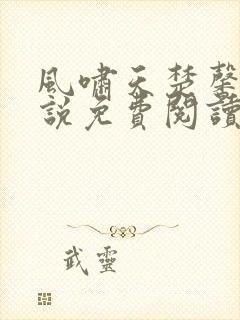 風嘯天楚馨
說免費閱讀
武靈